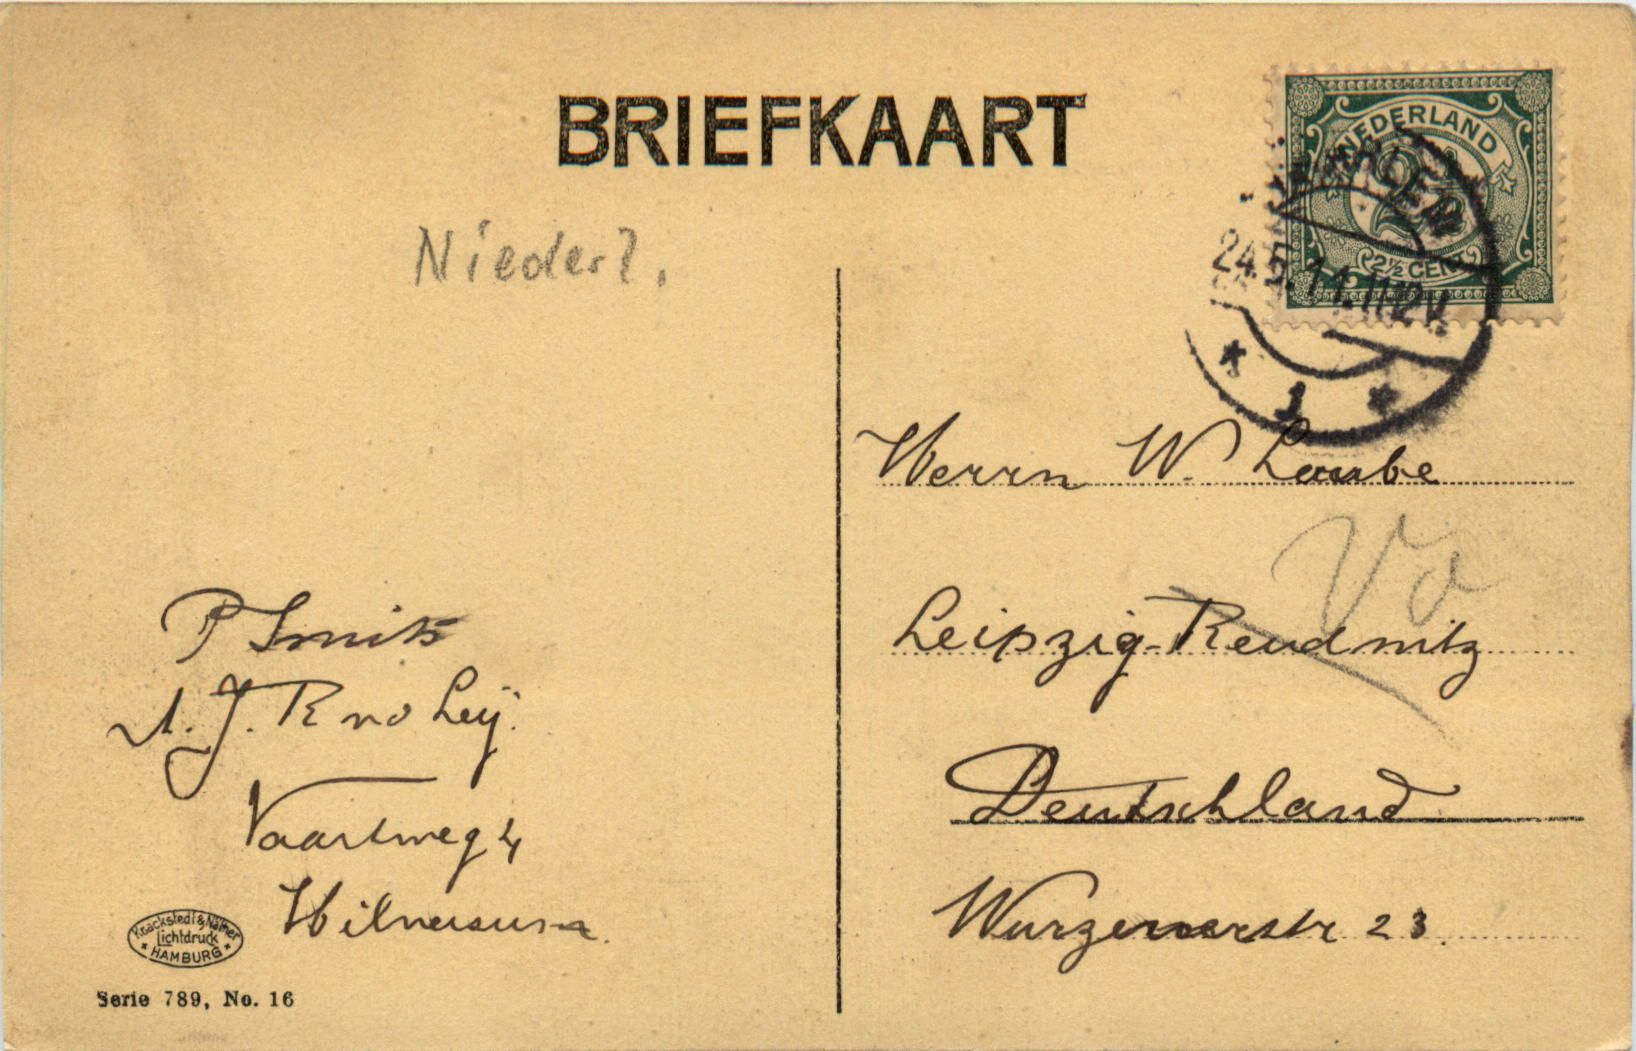 BRIEFKAART
Niederl.
NEDERLAND
2½
2½ CENT
24. 11-12V
1
Herrn W. Laube
Vo
Leipzig-Reudnitz
Deutschland
Wurzenerstr 23.
P Smits
A. J.
Vaartweg 4
Hilversum.
Knackstedt & Näther
Lichtdruck
HAMBURG
Serie 789, No. 16